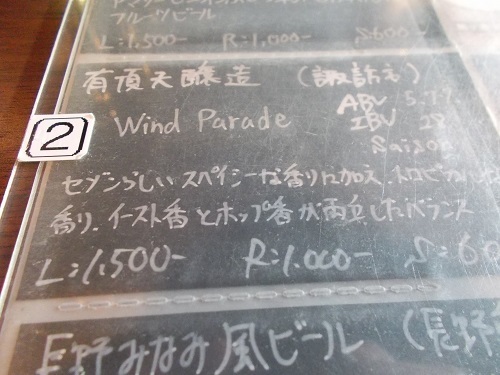 フルーツビール
L:1,500- R:1,000- S:600
有頂天醸造 (諏訪市)
2
Wind Parade
ABV 5.
IBV
Saison
セゾンらしいスペイシーな香りに加え、トロピカル
香り、イースト香とホップ香が両立したバランス
L:1,500- R:1,000- S:60
長野みなみ風ビール (長野